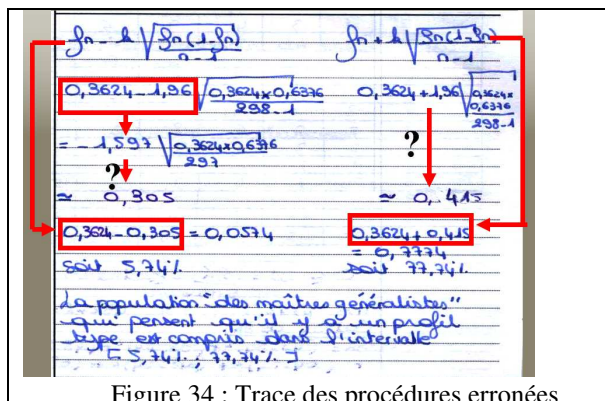 fn - k √fn(1-fn) / n-1
fn + k √fn(1-fn) / n-1
0,3624-1,96 √0,3624x0,6376 / 298-1
0,3624+1,96 √0,3624x0,6376 / 298-1
= -1,597 √0,3624x0,6376 / 297
?
?
≈ 0,305
≈ 0,415
0,3624-0,305 = 0,0574
0,3624+0,415
= 0,7774
soit 5,74%
soit 77,74%
La population "des maîtres généralistes"
qui pensent qu'il y a un profil
type est compris dans l'intervalle
[5,74% ; 77,74%]
Figure 34 : Trace des procédures erronées